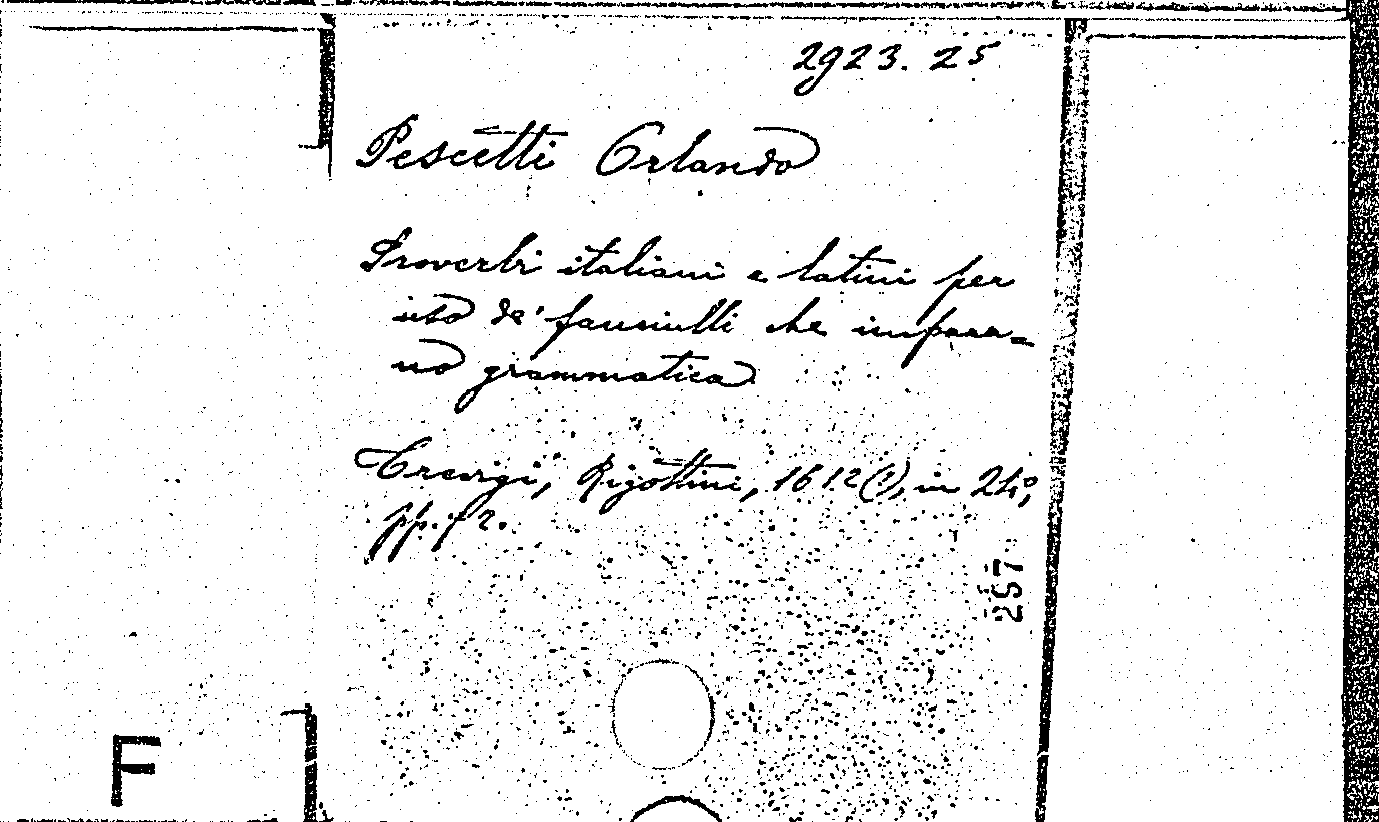 2923. 25
Pescetti Orlando
Proverbi italiani e latini per
uso de' fanciulli che impara-
no grammatica
Trevigi, Rigettini, 1612(?), in 24°,
pp. 72.
257
F